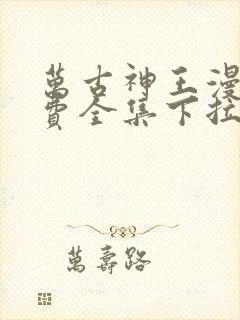 萬古神王漫
費全集下拉
萬壽路